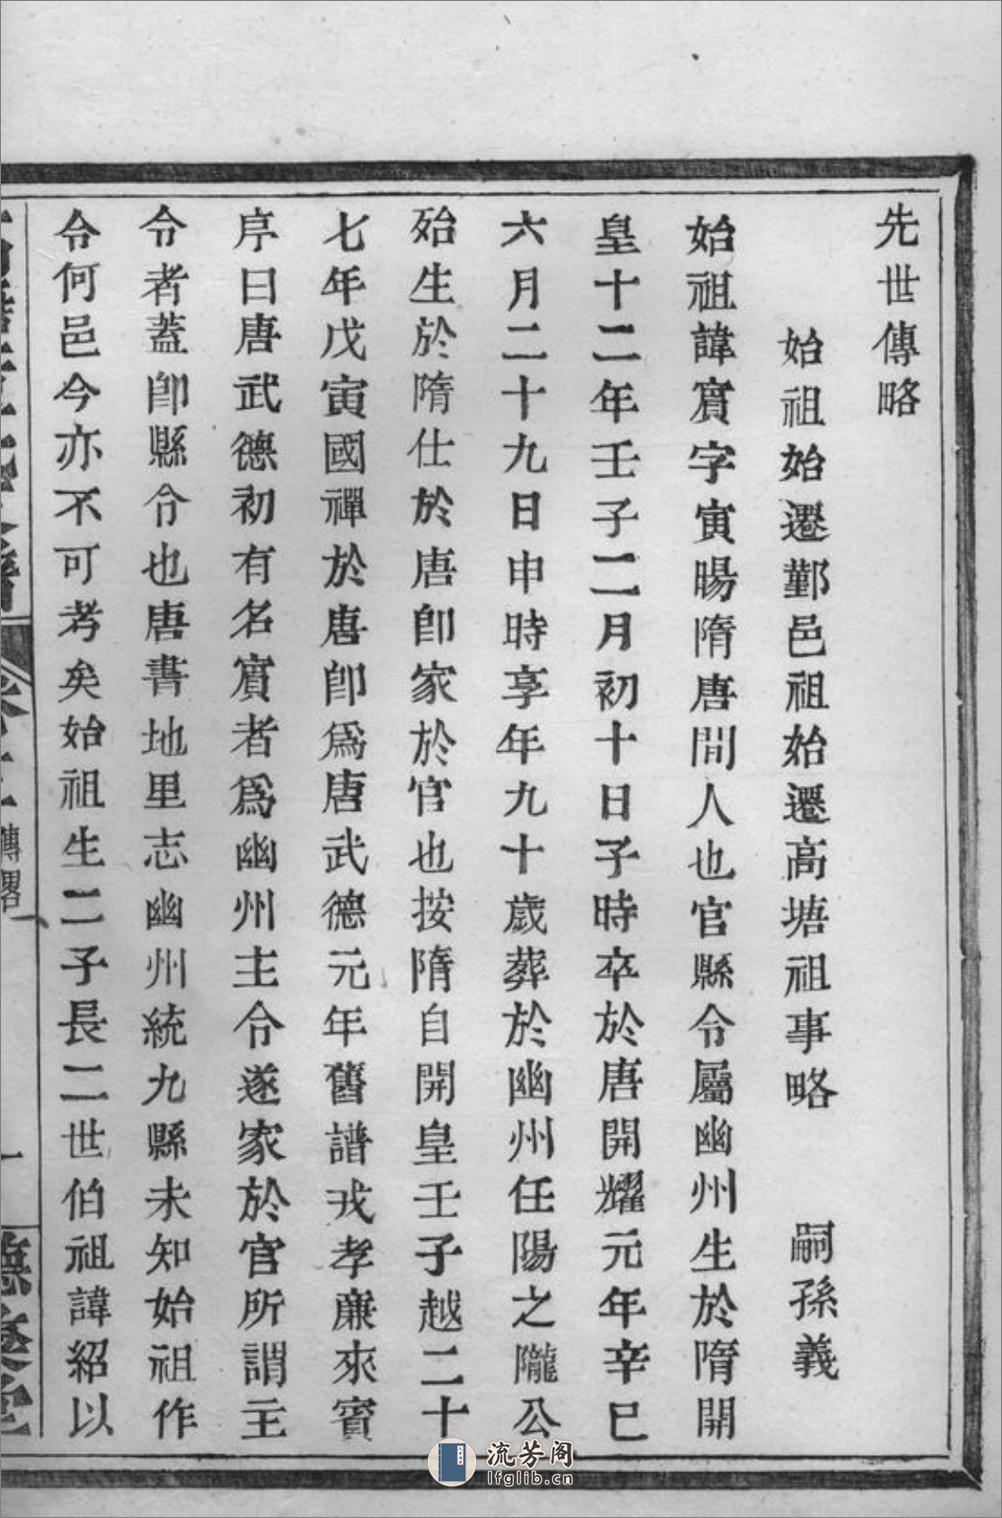 先世傳略
始祖始遷鄞邑祖始遷高塘祖事略 嗣孫義
始祖諱賔字寅暘隋唐間人也官縣令屬幽州生於隋開
皇十二年壬子二月初十日子時卒於唐開耀元年辛巳
六月二十九日申時享年九十歲葬於幽州任陽之隴公
殆生於隋仕於唐卽家於官也按隋自開皇壬子越二十
七年戊寅國禪於唐卽爲唐武德元年舊譜戎孝廉來賓
序曰唐武德初有名賔者爲幽州主令遂家於官所謂主
令者蓋卽縣令也唐書地里志幽州統九縣未知始祖作
令何邑今亦不可考矣始祖生二子長二世伯祖諱紹以
傳畧
一
流芳阁
lfglib.cn